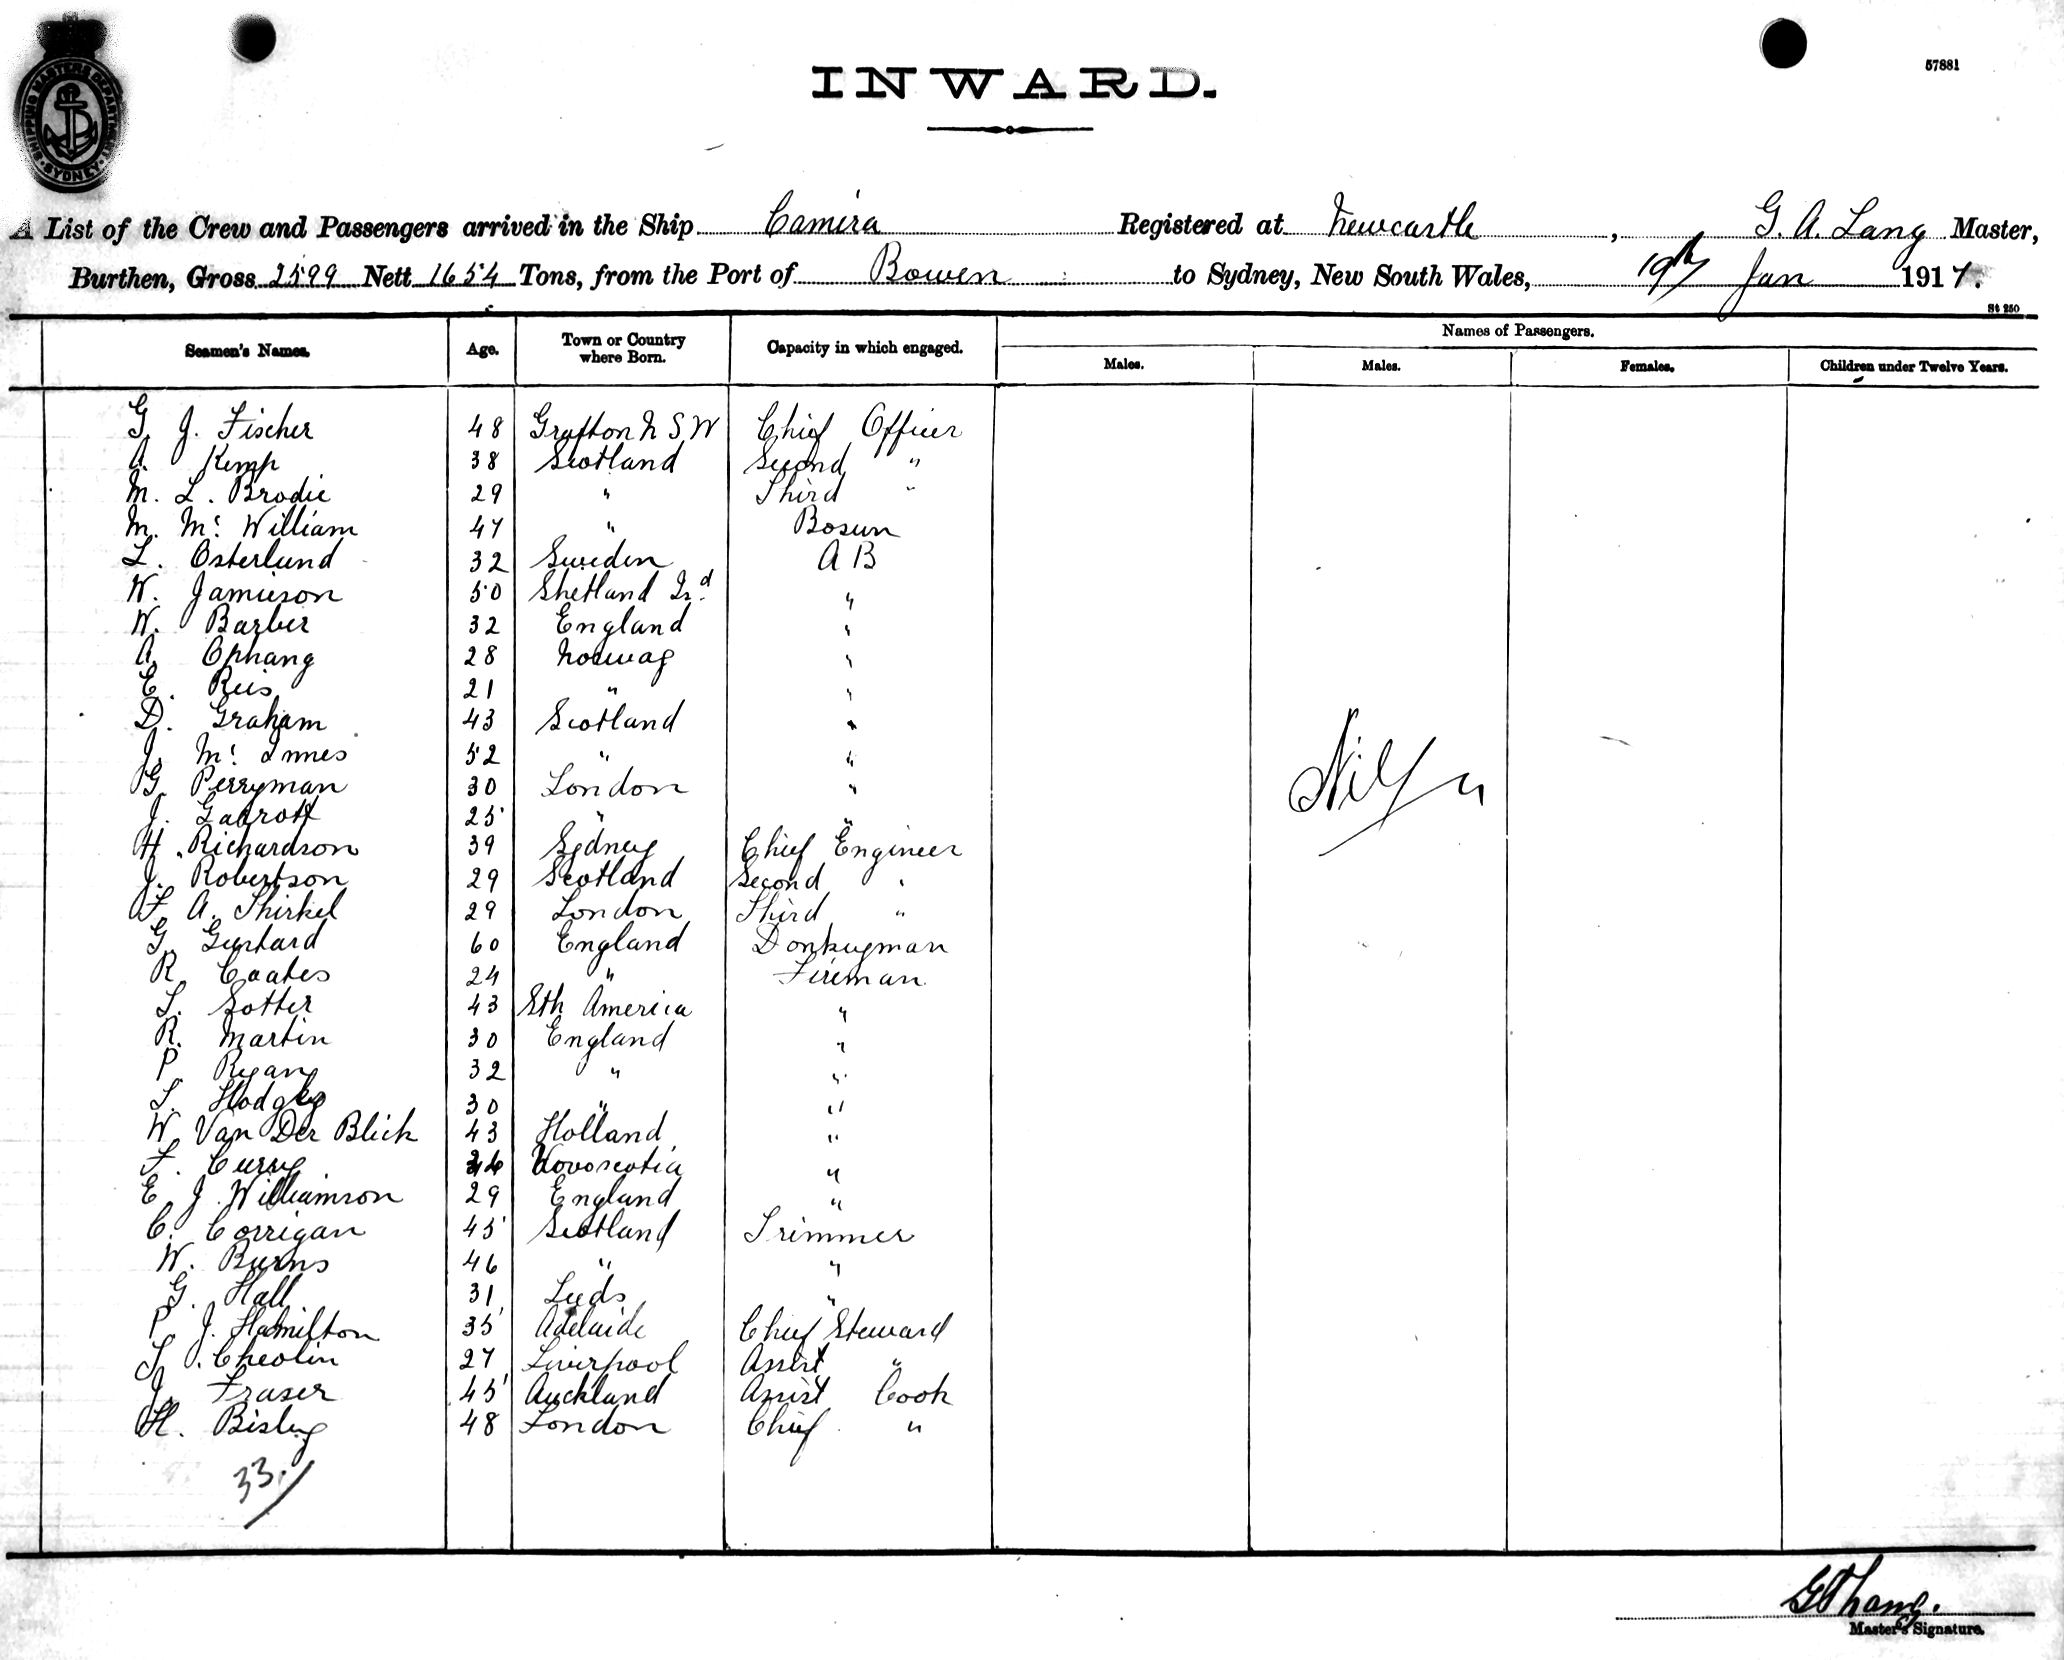 SHIPPING MASTERS DEPARTMENT SYDNEY
57881
INWARD.
A List of the Crew and Passengers arrived in the Ship Camira Registered at Newcastle, G. A. Lang Master,
Burthen, Gross 2599 Nett 1654 Tons, from the Port of Bowen to Sydney, New South Wales, 19th Jan 1917.
St 250
Seamen's Names. Age. Town or Country where Born. Capacity in which engaged. Names of Passengers.
Males. Males. Females. Children under Twelve Years.
G J. Fischer 48 Grafton N S W Chief Officer
A. Kemp 38 Scotland Second "
M. L. Brodie 29 " Third "
M. Mc William 47 " Bosun
L. Osterlund 32 Sweden A B
W. Jamieson 50 Shetland Isd "
W. Barber 32 England "
A. Ophang 28 Norway "
E. Reis 21 " "
D. Graham 43 Scotland "
J. Mc Innes 52 " "
G. Perryman 30 London "
J. Gabrott 25 " "
H. Richardson 39 Sydney Chief Engineer
J. Robertson 29 Scotland Second "
F. A. Thirkel 29 London Third "
G. 60 England Donkeyman
R. Coates 24 " Fireman
S. Sotter 43 Sth America "
R. Martin 30 England "
P. Ryan 32 " "
S. 30 " "
W. Van Der Blick 43 Holland "
F. Curry Novoscotia "
E J. Williamson 29 England "
C. Corrigan 45 Scotland Trimmer
W. Burns 46 " "
G. Hall 31 Leeds "
P. J. Hamilton 35 Adelaide Chief Steward
S. Cheolin 27 Liverpool Assist "
J. Fraser 45 Auckland Assist Cook
H. Bisley 48 London Chief "
Nil
33.
G A Lang.
Master's Signature.